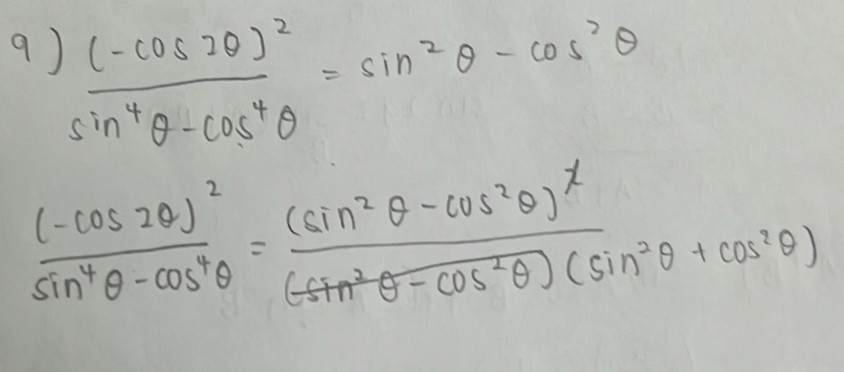 9) (-cos 2θ)² / (sin⁴θ - cos⁴θ) = sin²θ - cos²θ
(-cos 2θ)² / (sin⁴θ - cos⁴θ) = (sin²θ - cos²θ)² / (sin²θ - cos²θ)(sin²θ + cos²θ)